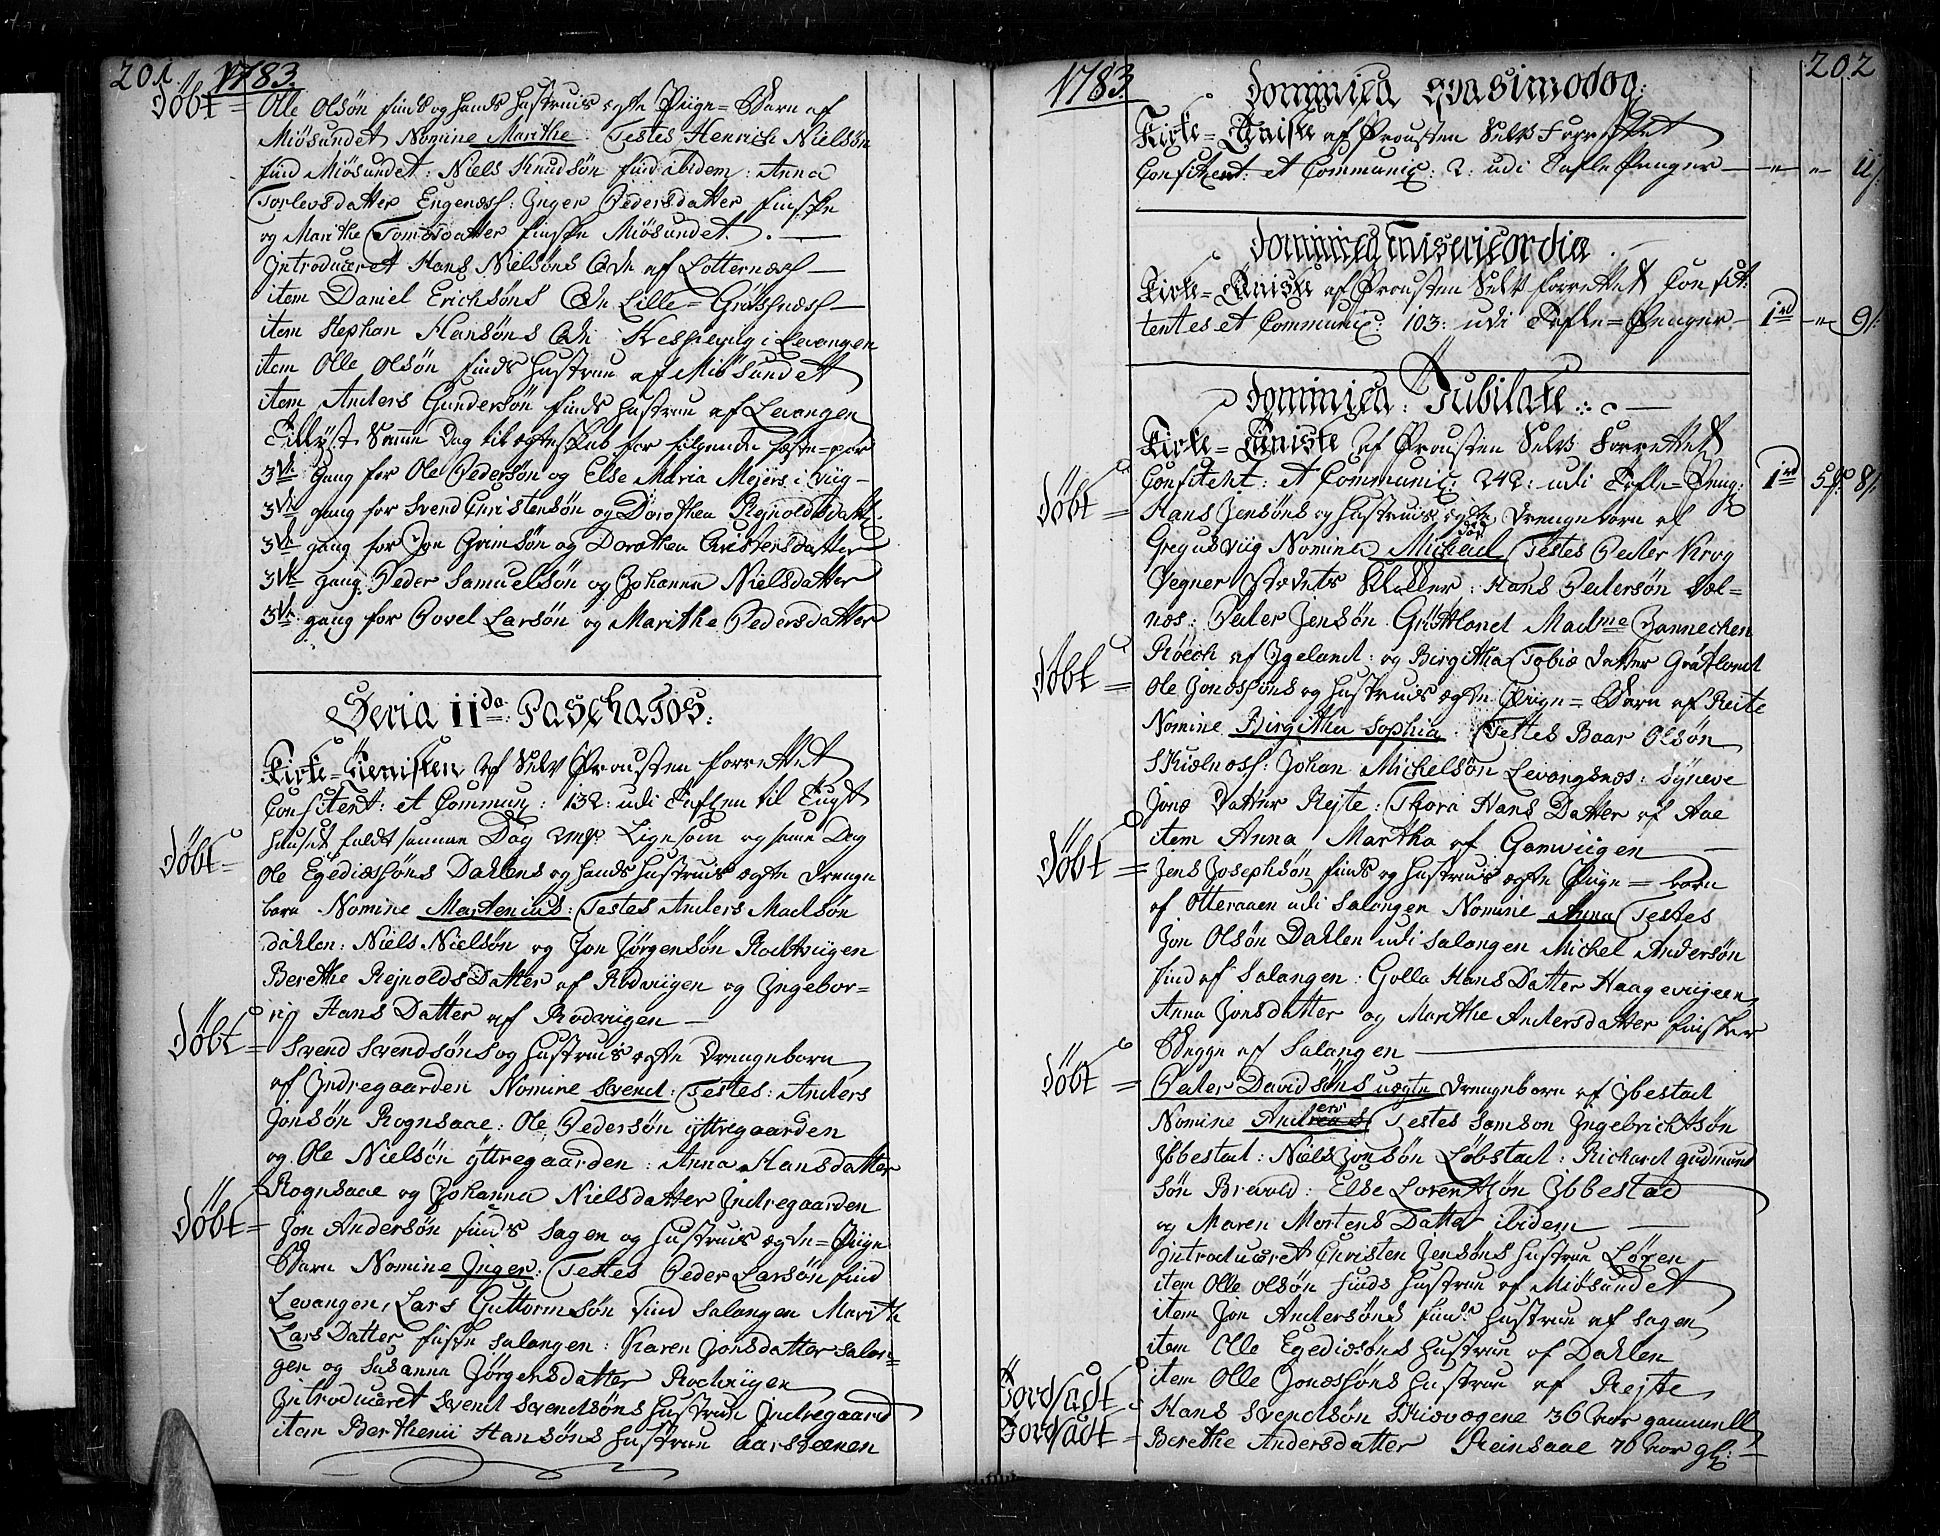 201 1783.
døbt = Olle Olsøn finds og hands hustruis egte Piige = Barn af
Miøsundet Nomine Marithe Testes Henrich Nielsøn
find Miøsundet: Niels Knudsøn find ibidem: Anna
Torlevsdatter Engenæss: Inger Pedersdatter finske
og Marithe Tomesdatter finske Miøsundet.
Introduceret Hans Nielsøns Qde af Lotternæss
item Daniel Erichsøns Qde Lille = Gröfsnæss
item Stephan Hansøns Qde i Levangen
item Olle Olsøn finds hustrue af Miösundet
item Anders Gundersøn finds hustrue af Levangen
Tillyst Samme Dag til egteskab for følgende feste=par
3de Gang for Ole Pedersøn og Else Maria Mejers i Viig
3de gang for Svend Christensøn og Dorothea Rejnoldsdatt:
3de gang for Jon Grimsøn og Dorothea Christensdatter
3de gang: Peder Samuelsøn og Johanna Nielsdatter
3de gang for Povel Larsøn og Marithe Pedersdatter
Feria IIda Paschatos:
Kirke=Tienisten af Selv Prousten forrettet
Confitent: et Commun: 132: udi Tuflen til Tugt
huuset faldt samme Dag 2mk: Ligesom og same Dag
døbt = Ole Egediessøns Dahlens og hands hustruis egte drenge
barn Nomine Martenius: Testes Anders Madsøn
dahlen: Niels Nielsøn og Jon Jørgensøn Rodtviigen
Berethe Rejnolds Datter af Rodviigen og Ingebor=
rig Hans Datter af Rodviigen
døbt = Svend Svendsøns og hustruis egte drengebarn
af Indregaarden Nomine Svend: Testes: Anders
Jonsøn Rognsaae: Ole Pedersøn yttregaarden
og Ole Nielsøn yttregaarden: Anna Hansdatter
Rognsaae og Johanna Nielsdatter Indregaarden
døbt = Jon Andersøn finds Sagen og hustruis egte=Piige
Barn Nomine Inger: Testes Peder Larsøn find
Levangen, Lars Guttormsøn find Salangen Marith
Lars Datter finske Salangen: Karen Jonsdatter Salan=
gen og Susanna Jørgensdatter Rodviigen
Introduceret Svend Svendsøns hustrue Indregaard
item Berthenii Hansøns hustrue Aarsteenen
1783. 202
dominica qvasimodog:
Kirke=Tieniste af Prousten Selv Forrettet
Confitent: et Communic: 2: udi Tafle Penger 11/:
dominica misericordia
Kirke=Tieniste af Prousten Selv forrettet Confit:
tentes et Communic: 103: udi Tafle=Penger 1rd 9/:
dominica: Jubilate
Kirke=Tieniste af Prousten Selv Forrettet
Confitent: et Communic: 242: udi Tafle=Peng: 1rd 5 8/:
døbt = Hans Jensøns og hustruis egte drengebarn af
Gregusviig Nomine Michael Testes Peder Krog
Vegner: Hans Pedersøn Sæl=
næs: Peder Jensøn Gröttland Madme Jannechen
Röech af Igeland: og Birgitha Tobiæ datter Grötland
døbt = Ole Jonassøns og hustruis egte Piige = Barn af Reite
Nomine Birgitha Sophia. Testes Baar Olsøn
Skielnæss: Johan Michelsøn Levangsnæs: Syneve
Jons datter Rejte: Thora Hans Datter af Aae
item Anna Martha af Gamviigen
døbt = Jens Josephsøn finds og hustruis egte Piige = barn
af Otteraaen udi Salangen Nomine Anna Testes
Jon Olsøn Dahlen udi Salangen Michel Andersøn
find af Salangen: Golla Hans Datter Haagevigeen
Anna Jonsdatter og Marithe Andersdatter finsker
Begge af Salangen
døbt = Peder Davidsøns uægte drengebarn af Ibestad
Nomine Anders Testes Samson Ingebrichtsøn
Ibbestad: Niels Jonsøn Løbstad: Richard gudmund
søn Brevold: Else Lorentzøn Ibbestad
og Maren Mortens Datter ibidem
Introduceret Christen Jensøns hustrue Løxen
item Olle Olsøn finds hustrue af Miøsundet
item Jon Andersøns find: hustrue af Sagen
item Olle Egediesøns hustrue af Dahlen
item Olle Jonassøns hustrue af Rejte
Jordfædt = Hans Svendsøn Skiævogene 36 Aar gammell
Jordfædt = Berethe Andersdatter Reinsaae 70 Aar gl: